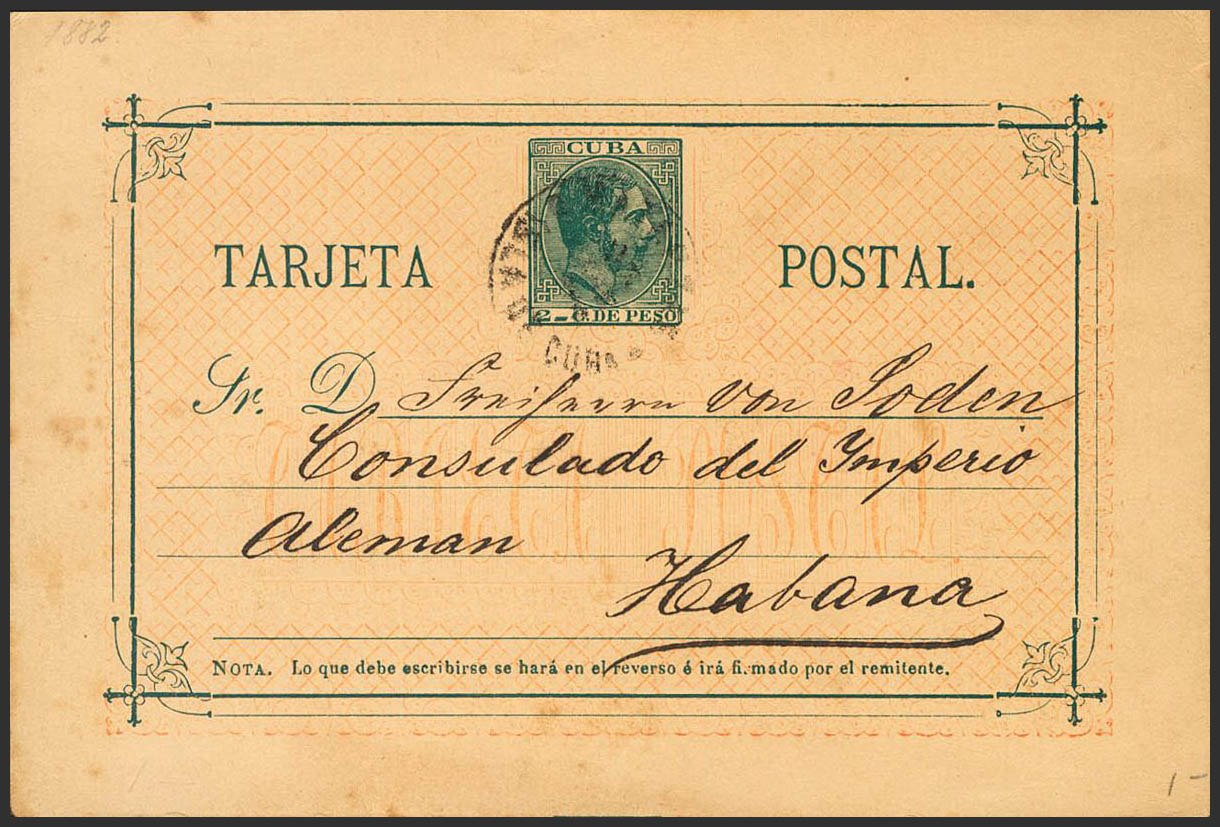 1882.
CUBA
2 - C. DE PESO
TARJETA POSTAL.
CUBA
Sr. D Freiherrn von Soden
Consulado del Imperio
Aleman
Habana
NOTA. Lo que debe escribirse se hará en el reverso é irá firmado por el remitente.
1 -